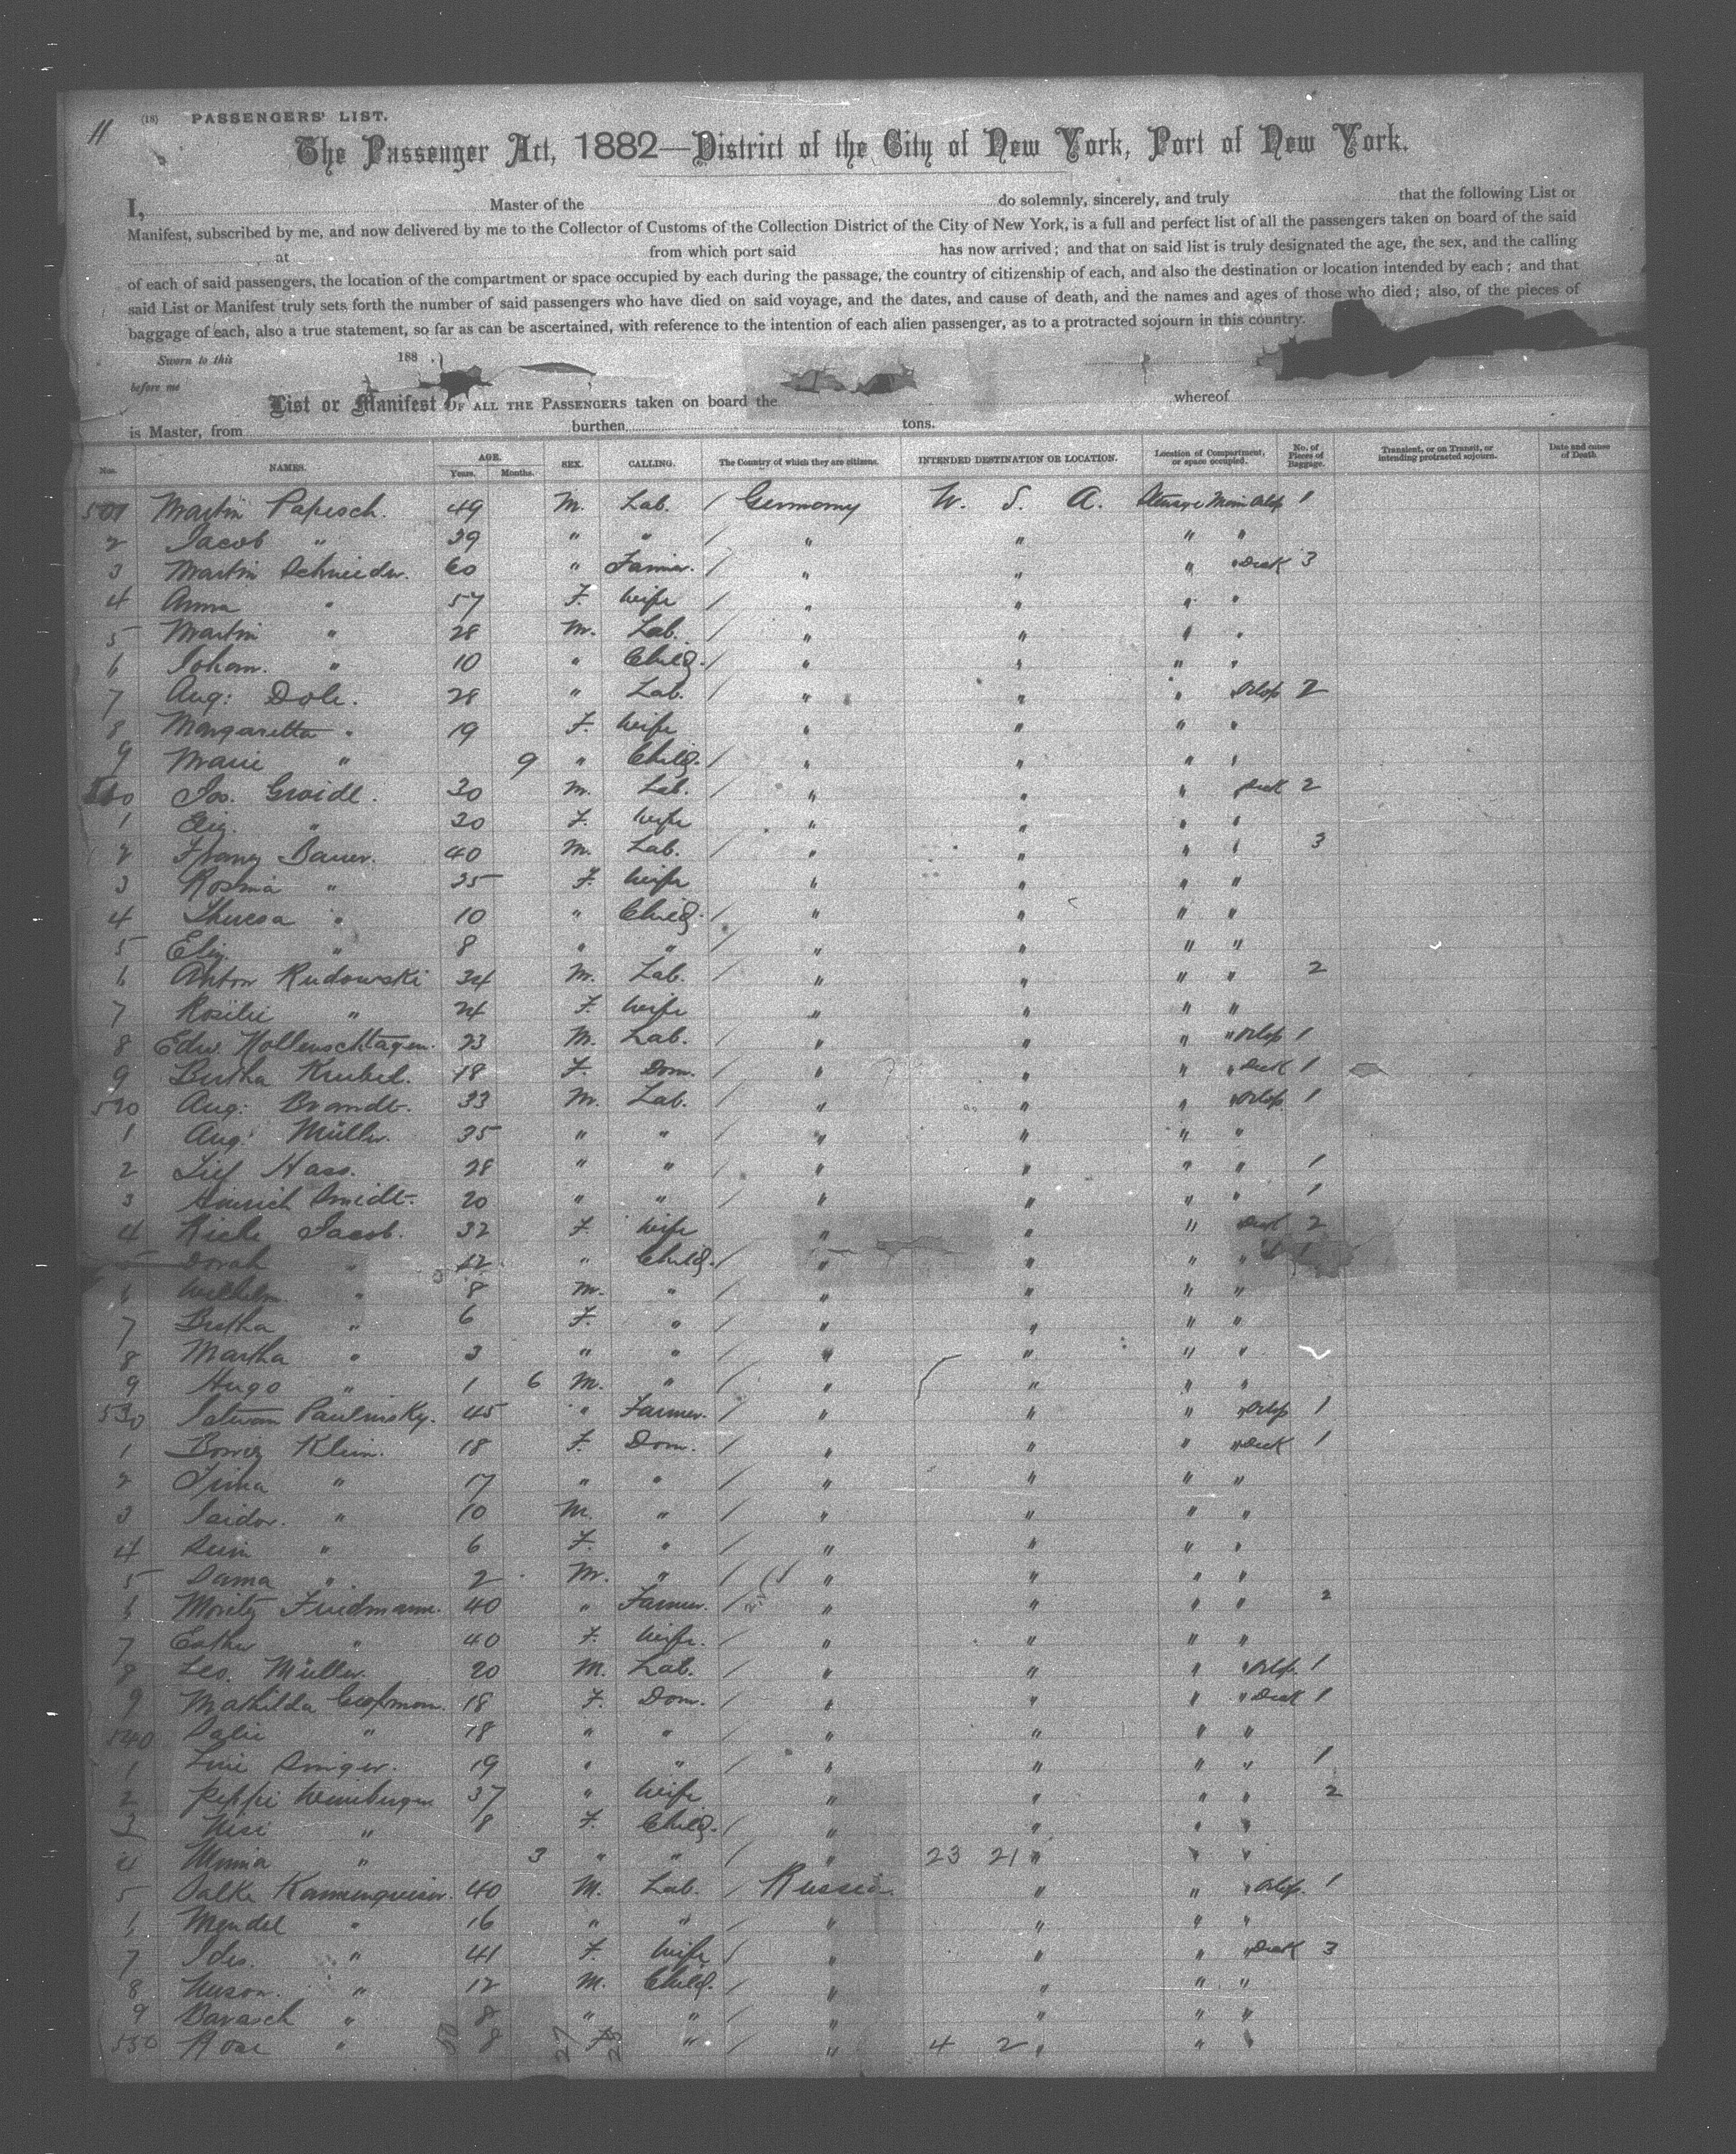 11
(18) PASSENGERS' LIST.
The Passenger Act, 1882—District of the City of New York, Port of New York.
I, Master of the do solemnly, sincerely, and truly that the following List or
Manifest, subscribed by me, and now delivered by me to the Collector of Customs of the Collection District of the City of New York, is a full and perfect list of all the passengers taken on board of the said
at from which port said has now arrived; and that on said list is truly designated the age, the sex, and the calling
of each of said passengers, the location of the compartment or space occupied by each during the passage, the country of citizenship of each, and also the destination or location intended by each; and that
said List or Manifest truly sets forth the number of said passengers who have died on said voyage, and the dates, and cause of death, and the names and ages of those who died; also, of the pieces of
baggage of each, also a true statement, so far as can be ascertained, with reference to the intention of each alien passenger, as to a protracted sojourn in this country.
Sworn to this 188
before me
List or Manifest OF ALL THE PASSENGERS taken on board the whereof
is Master, from burthen tons.
Nos. NAMES. AGE. Years. Months. SEX. CALLING. The Country of which they are citizens. INTENDED DESTINATION OR LOCATION. Location of Compartment, or space occupied. No. of Pieces of Baggage. Transient, or on Transit, or intending protracted sojourn. Date and cause of Death
501 Martin Papesch. 49 M. Lab. / Germany U. S. A. Steerage Main Orlop 1
2 Jacob " 39 " " / " " " "
3 Martin Schneider. 60 " Farmer. / " " " " Deck 3
4 Anna " 57 F. Wife / " " " "
5 Martin " 28 M. Lab. / " " " "
6 Johann. " 10 " Child. / " " " "
7 Aug: Dole. 28 " Lab. / " " " Orlop 2
8 Margaretta " 19 F. Wife " " " "
9 Marie " 9 " Child. / " " " "
510 Jos. Graidl. 30 M. Lab. / " " " Deck 2
1 Eliz. " 20 F. Wife " " " "
2 Franz Bauer. 40 M. Lab. / " " " " 3
3 Rosina " 35 F. Wife " " " "
4 Theresa " 10 " Child. / " " " "
5 Eliz. " 8 " " / " " " "
6 Anton Rudowski 34 M. Lab. / " " " " 2
7 Rosilie " 24 F. Wife " " " "
8 Edw. 23 M. Lab. / " " " " Orlop 1
9 Bertha Krubel. 18 F. Dom. / " " " " Deck 1
520 Aug: Brandt. 33 M. Lab. / " " " " Orlop 1
1 Aug: Müller. 35 " " / " " " "
2 Hass. 28 " " / " " " " 1
3 Heinrich Smidt. 20 " " / " " " " 1
4 Jacob. 32 F. Wife " " " Deck 2
5 Dorah " 12 " Child. / " " " "
6 Wilhelm " 8 M. " / " " " "
7 Bertha " 6 F. " / " " " "
8 Martha " 3 " " / " " " "
9 Hugo " 1 6 M. " / " " " "
530 45 " Farmer. / " " " " Orlop 1
1 Klein. 18 F. Dom. / " " " " Deck 1
2 " 17 " " / " " " "
3 Isidor. " 10 M. " / " " " "
4 " 6 F. " / " " " "
5 " 2 M. " / " " " "
6 Moritz Friedmann. 40 " Farmer. / " " " " 2
7 Esther " 40 F. Wife. " " " "
8 Leo. Müller. 20 M. Lab. / " " " " Orlop. 1
9 Mathilda 18 F. Dom. / " " " " Deck 1
540 Salie " 18 " " / " " " "
1 19 " " / " " " " 1
2 Peppi Weinberger 37 " Wife " " " " 2
3 " 8 F. Child. / " " " "
4 Minna " 3 " " / " 23 21 " " "
5 40 M. Lab. / Russia " " " Orlop. 1
6 Mendel " 16 " " / " " " "
7 Ides. " 41 F. Wife / " " " " Deck 3
8 " 12 M. Child. / " " " "
9 Barasch " 8 " " / " " " "
550 Rose " 8 F " / " 4 2 " " "